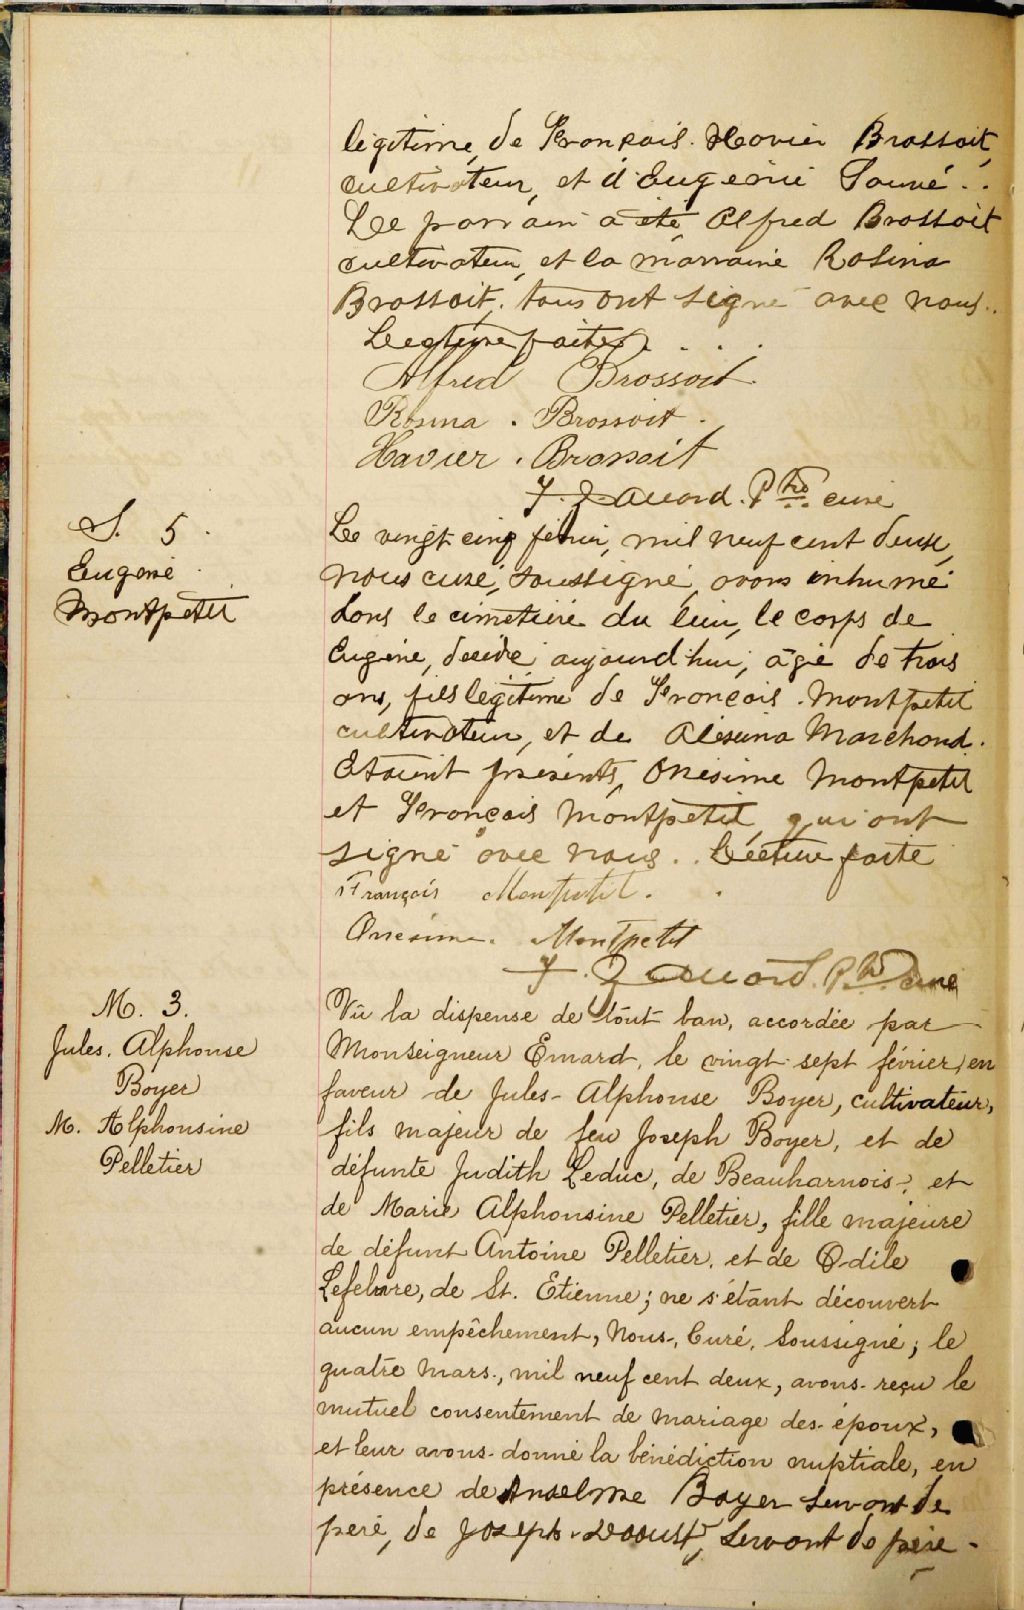 légitime, de François-Xavier Brossoit,
cultivateur, et d'Eugénie Sauvé..
Le parrain a été, Alfred Brossoit
cultivateur, et la marraine Rosina
Brossoit, tous ont signé avec nous..
Lecture faite. . . .
Alfred Brossoit.
Rosina. Brossoit.
Xavier. Brossoit
Ptre curé
S. 5.
Eugène
Montpetit
Le vingt cinq février, mil neuf cent deux,
nous curé, soussigné, avons inhumé
dans le cimetière du lieu, le corps de
Eugène, décédé aujourd'hui, âgé de trois
ans, fils légitime de François Montpetit
cultivateur, et de Alexina Marchand.
Etaient présents, Onésime Montpetit
et François Montpetit, qui ont
signé avec nous.. Lecture faite
François Montpetit.
Onésime. Montpetit
Ptre curé
M. 3.
Jules. Alphonse
Boyer
M. Alphonsine
Pelletier
Vû la dispense de tout ban, accordée par
Monseigneur Emard, le vingt-sept février, en
faveur de Jules-Alphonse Boyer, cultivateur,
fils majeur de feu Joseph Boyer, et de
défunte Judith Leduc, de Beauharnois, et
de Marie Alphonsine Pelletier, fille majeure
de défunt Antoine Pelletier, et de Odile
Lefebvre, de St. Etienne; ne s'étant découvert
aucun empêchement, Nous, Curé, Soussigné; le
quatre mars, mil neuf cent deux, avons reçu le
mutuel consentement de mariage des époux,
et leur avons donné la bénédiction nuptiale, en
présence de Anselme Boyer servant de
père, de Joseph Daoust, servant de père-